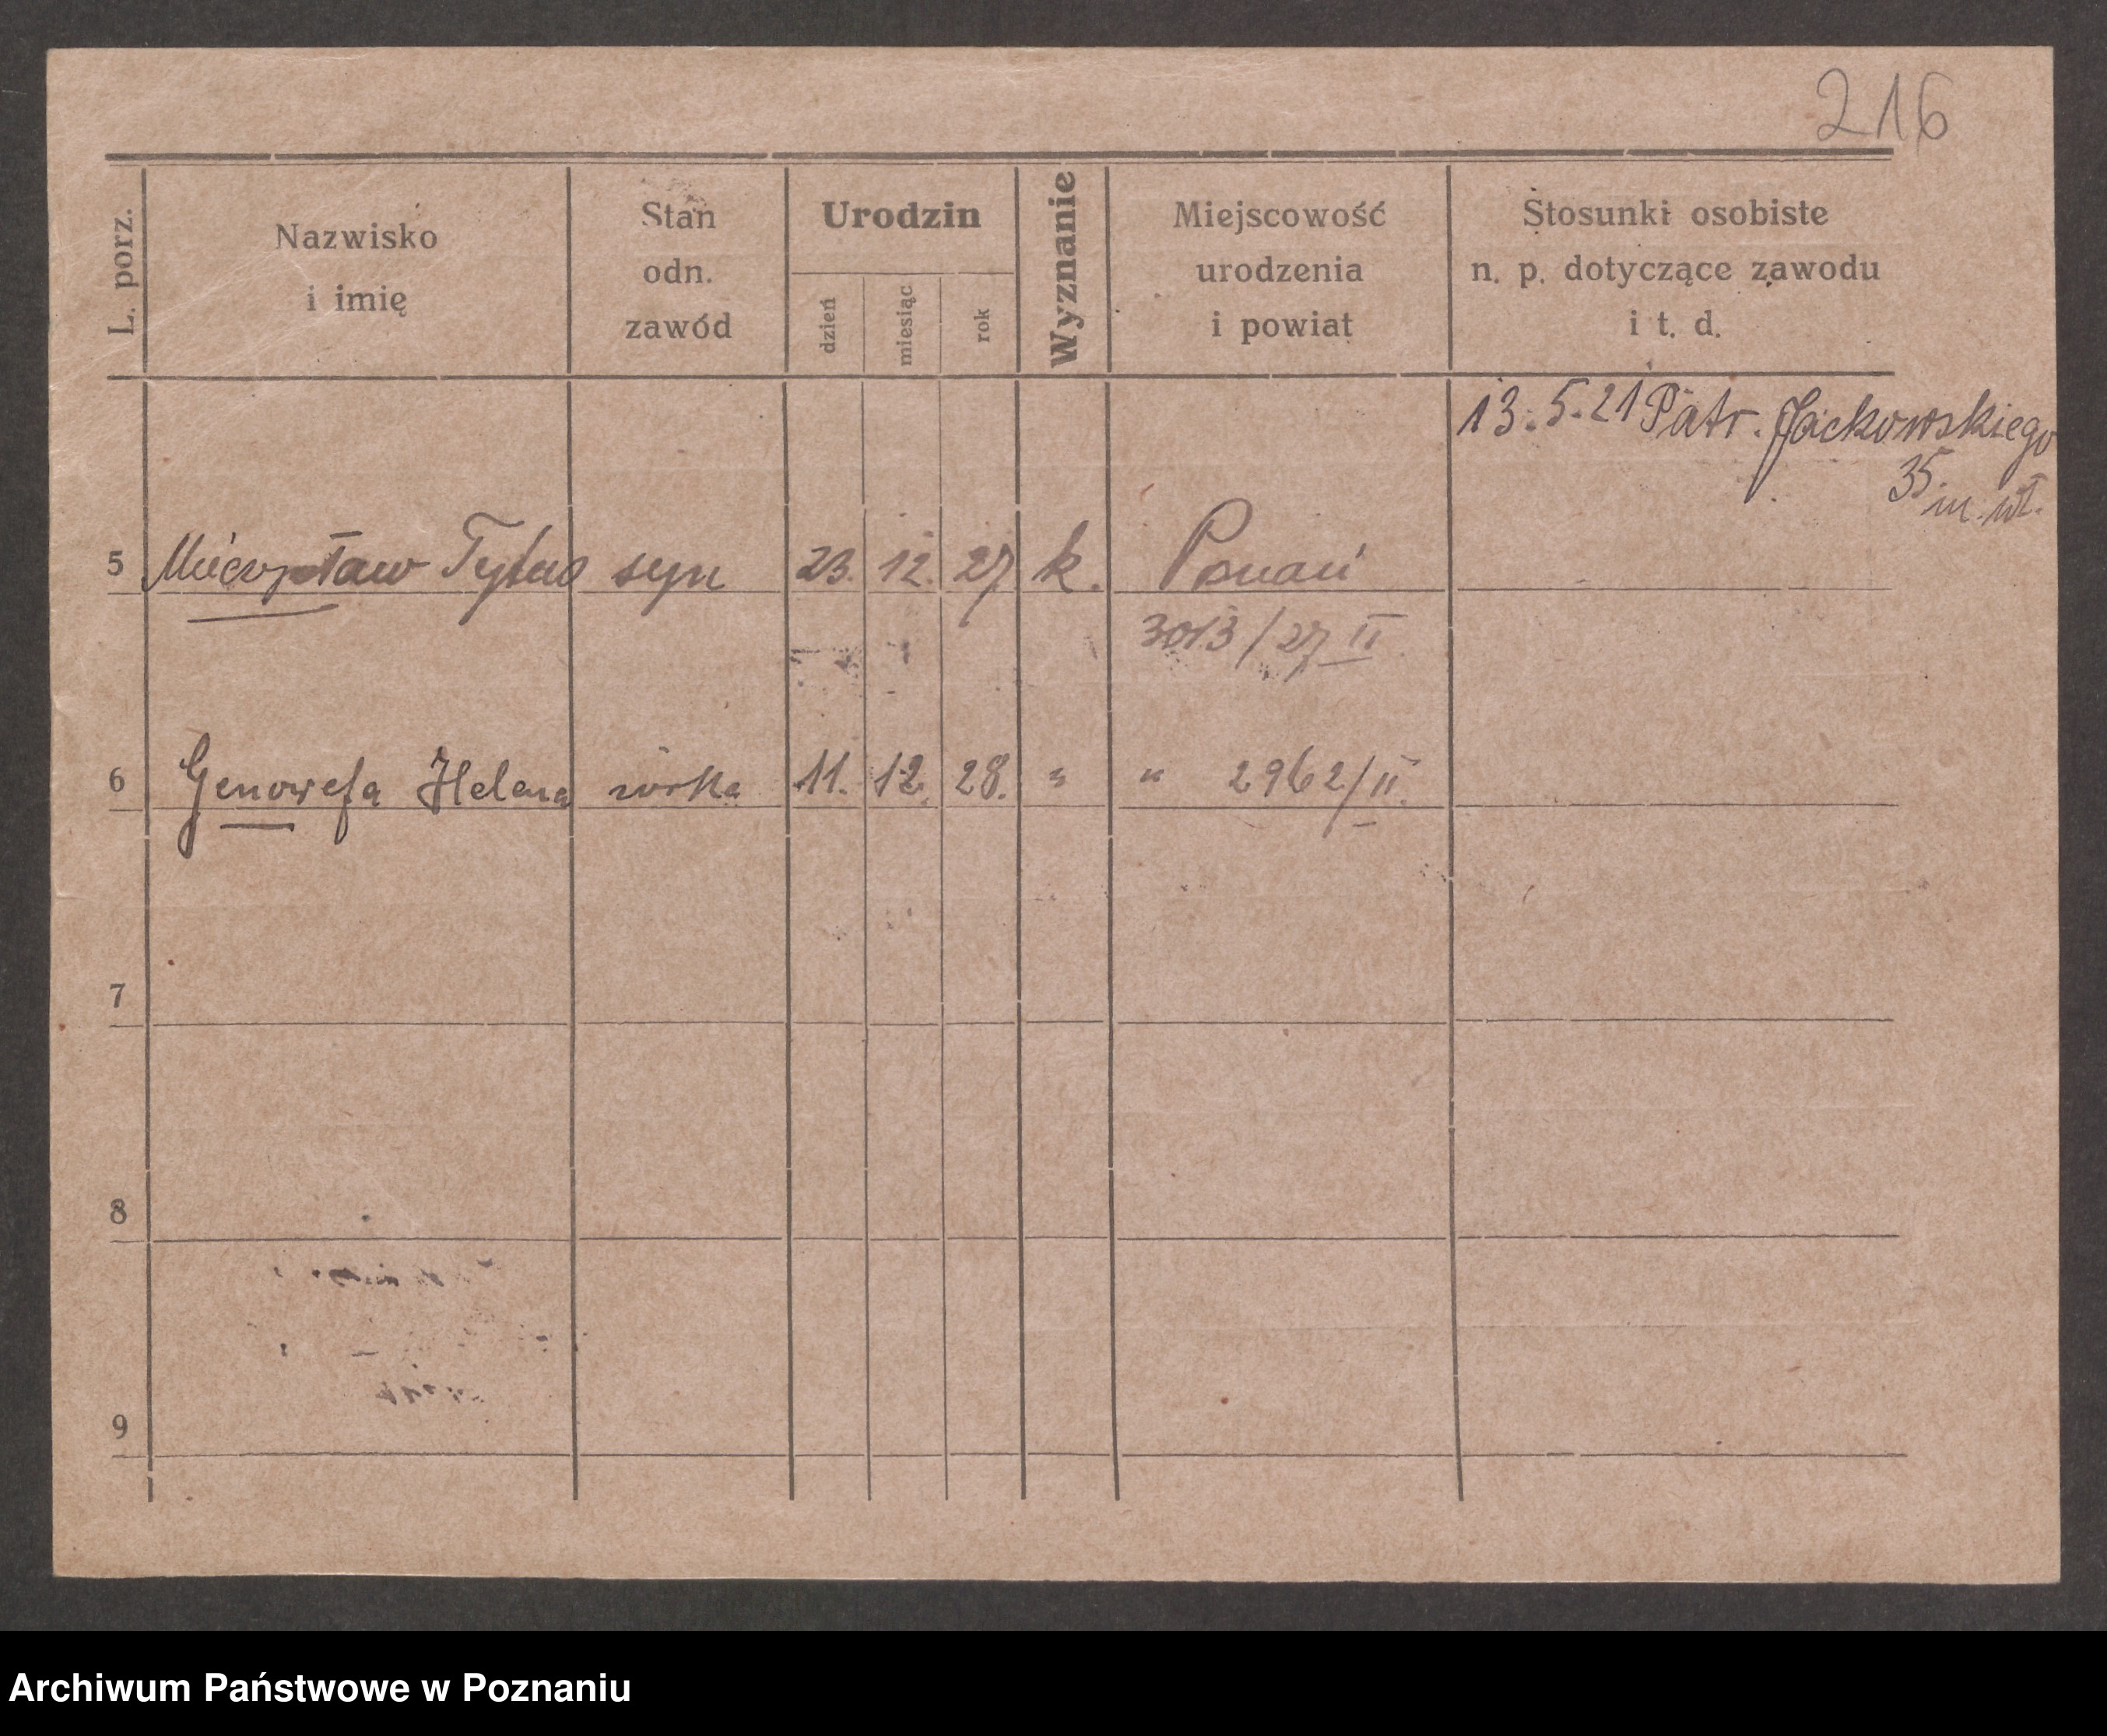 216
L. porz.
Nazwisko
i imię
Stan
odn.
zawód
Urodzin
dzień
miesiąc
rok
Wyznanie
Miejscowość
urodzenia
i powiat
Stosunki osobiste
n. p. dotyczące zawodu
i t. d.
13.5.21 Patr. Jackowskiego
35 m. wł.
5 Mieczysław Tytus syn 23. 12. 27 k. Poznań
3013/27 II
6 Genowefa Helena córka 11. 12. 28. " " 2962/II.
7
8
9
Archiwum Państwowe w Poznaniu